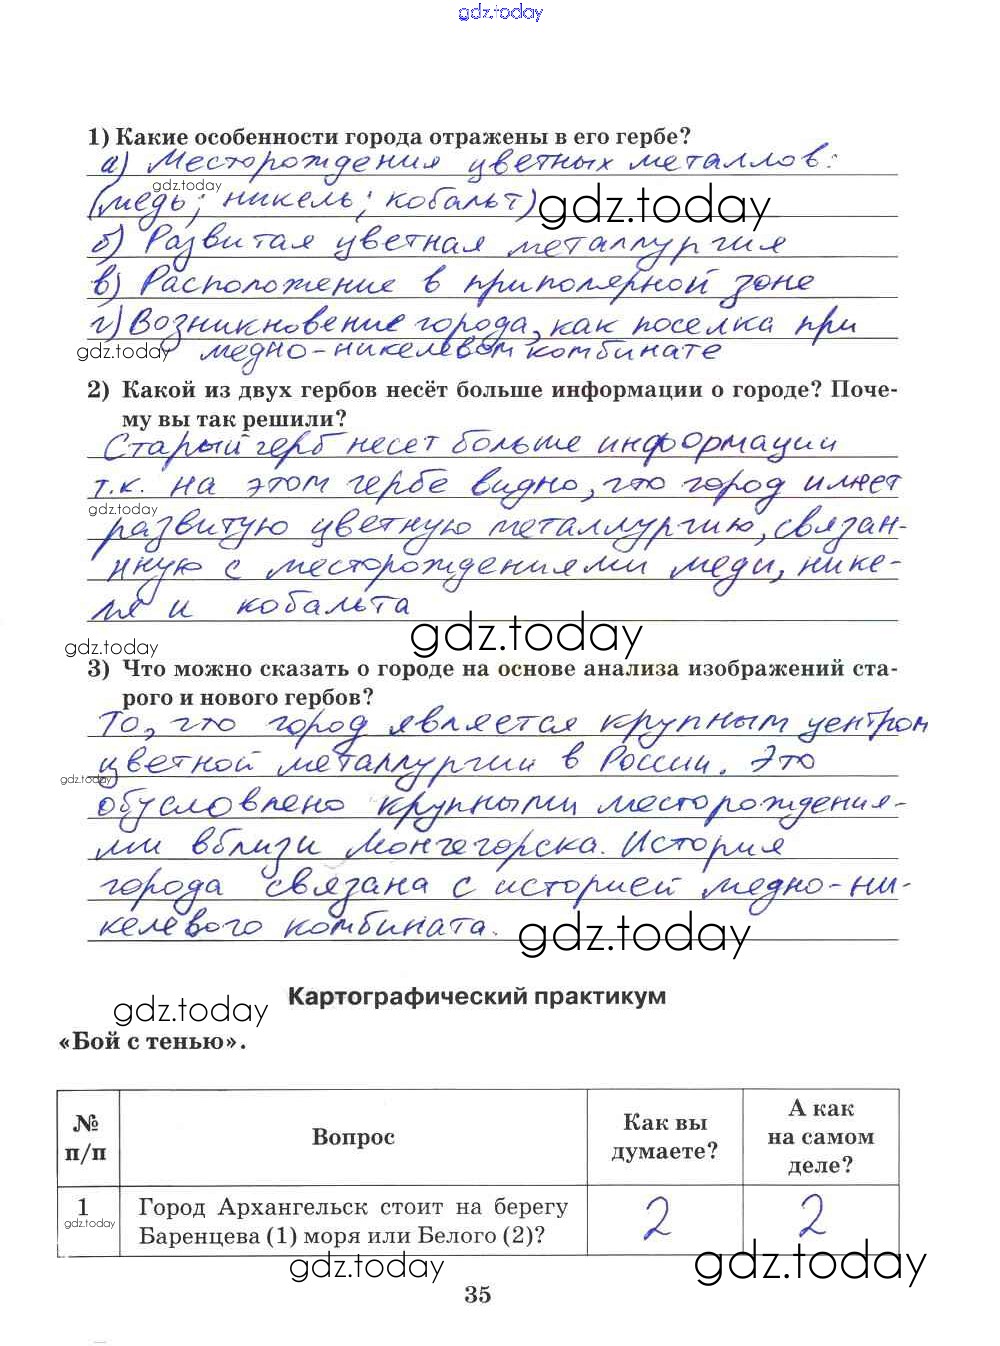 gdz.today
1) Какие особенности города отражены в его гербе?
а) Месторождения цветных металлов:
gdz.today
(медь; никель; кобальт)
gdz.today
б) Развитая цветная металлургия
в) Расположение в приполярной зоне
г) Возникновение города, как поселка при
gdz.today
медно-никелевом комбинате
2) Какой из двух гербов несёт больше информации о городе? Поче-
му вы так решили?
Старый герб несет больше информации
т.к. на этом гербе видно, что город имеет
gdz.today
развитую цветную металлургию, связан-
нную с месторождениями меди, нике-
ля и кобальта
gdz.today
gdz.today
3) Что можно сказать о городе на основе анализа изображений ста-
рого и нового гербов?
То, что город является крупным центром
цветной металлургии в России. Это
gdz.today
обусловлено крупными месторождения-
ми вблизи Мончегорска. История
города связана с историей медно-ни-
келевого комбината.
gdz.today
Картографический практикум
gdz.today
«Бой с тенью».
№ п/п
Вопрос
Как вы думаете?
А как на самом деле?
1
gdz.today
Город Архангельск стоит на берегу
Баренцева (1) моря или Белого (2)?
2
2
gdz.today
gdz.today
35